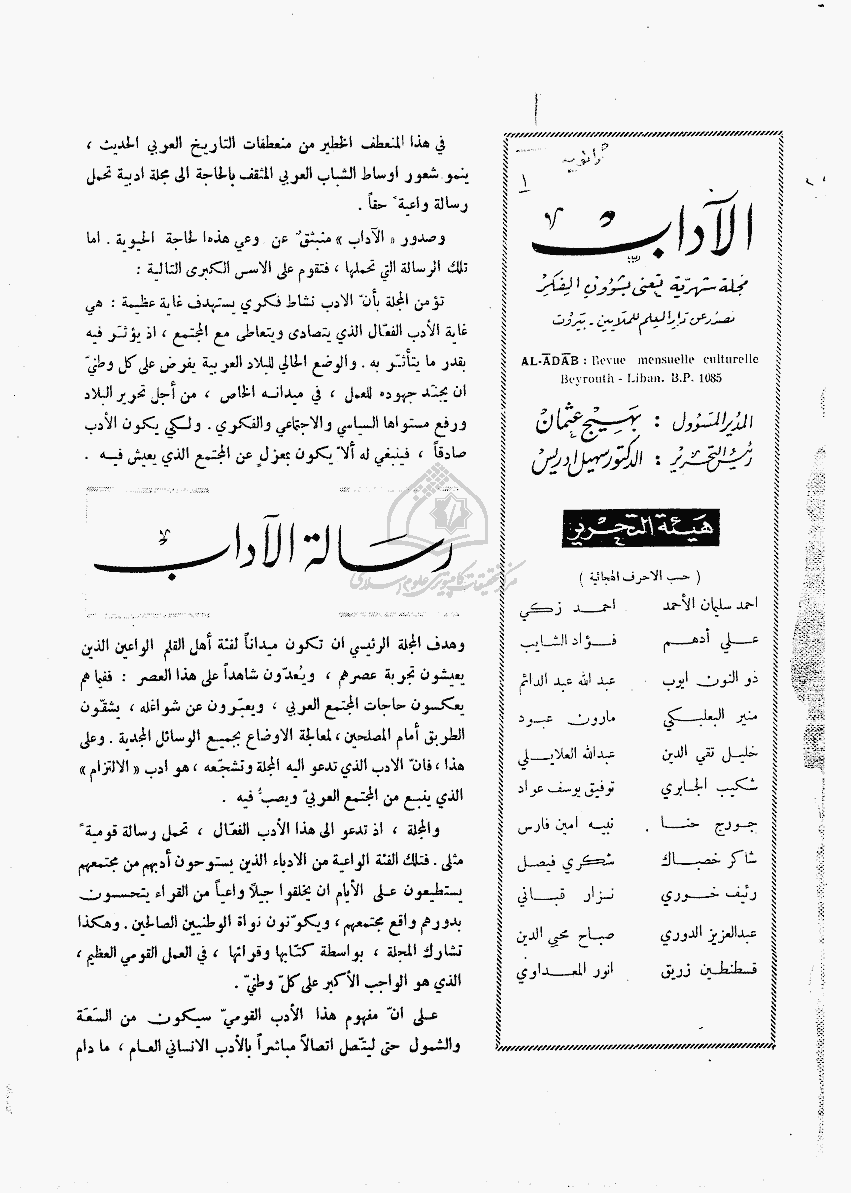 ١
الآداب
مجلة شهرية تعنى بشؤون الفكر
تصدر عن دار العلم للملايين - بيروت
AL-ĀDĀB : Revue mensuelle culturelle
Beyrouth - Liban. B.P. 1085
المدير المسؤول : بهيج عثمان
رئيس التحرير : الدكتور سهيل ادريس
هيئة التحرير
( حسب الاحرف الهجائية )
احمد سليمان الأحمد احمد زكي
علي أدهم فؤاد الشايب
ذو النون ايوب عبد الله عبد الدائم
منير البعلبكي مارون عبود
خليل تقي الدين عبدالله العلايلي
شكيب الجابري توفيق يوسف عواد
جورج حنا نبيه امين فارس
شاكر خصباك شكري فيصل
رئيف خوري نزار قباني
عبدالعزيز الدوري صباح محي الدين
قسطنطين زريق انور المعداوي
في هذا المنعطف الخطير من منعطفات التاريخ العربي الحديث ،
ينمو شعور اوساط الشباب العربي المثقف بالحاجة الى مجلة ادبية تحمل
رسالة واعية حقاً .
وصدور « الآداب » منبثق عن وعي هذه الحاجة الحيوية . اما
تلك الرسالة التي تحملها ، فتقوم على الاسس الكبرى التالية :
تؤمن المجلة بأنّ الادب نشاط فكري يستهدف غاية عظيمة : هي
غاية الأدب الفعّال الذي يتصادى ويتعاطى مع المجتمع ، اذ يؤثّر فيه
بقدر ما يتأثّر به . والوضع الحالي للبلاد العربية يفرض على كل وطنيّ
ان يجنّد جهوده للعمل ، في ميدانه الخاص ، من أجل تحرير البلاد
ورفع مستواها السياسي والاجتماعي والفكري . ولكي يكون الأدب
صادقاً ، فينبغي له ألاّ يكون بمعزلٍ عن المجتمع الذي يعيش فيه .
رسالة الآداب
مركز تحقيقات كامپيوترى علوم اسلامى
وهدف المجلة الرئيسي ان تكون ميداناً لفئة أهل القلم الواعين الذين
يعيشون تجربة عصرهم ، ويُعدّون شاهداً على هذا العصر : ففيما هم
يعكسون حاجات المجتمع العربي ، ويعبّرون عن شواغله ، يشقّون
الطريق أمام المصلحين ، لمعالجة الاوضاع بجميع الوسائل المجدية . وعلى
هذا ، فانّ الادب الذي تدعو اليه المجلة وتشجّعه ، هو ادب « الالتزام »
الذي ينبع من المجتمع العربيّ ويصبّ فيه .
والمجلة ، اذ تدعو الى هذا الأدب الفعّال ، تحمل رسالة قومية
مثلى . فتلك الفئة الواعية من الادباء الذين يستوحون أدبهم من مجتمعهم
يستطيعون على الأيام ان يخلقوا جيلاً واعياً من القراء يتحسسون
بدورهم واقع مجتمعهم ، ويكوّنون نواة الوطنيين الصالحين . وهكذا
تشارك المجلة ، بواسطة كتّابها وقرائها ، في العمل القومي العظيم ،
الذي هو الواجب الأكبر على كلّ وطنيّ .
على انّ مفهوم هذا الأدب القوميّ سيكون من السّعة
والشمول حتى ليتّصل اتصالاً مباشراً بالأدب الانساني العام ، ما دام